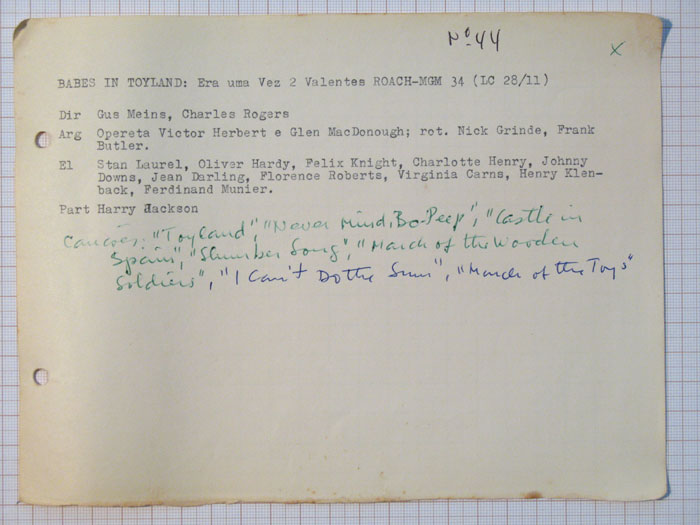 Nº 44
x
BABES IN TOYLAND: Era uma Vez 2 Valentes ROACH-MGM 34 (LC 28/11)
Dir Gus Meins, Charles Rogers
Arg Opereta Victor Herbert e Glen MacDonough; rot. Nick Grinde, Frank
Butler.
El Stan Laurel, Oliver Hardy, Felix Knight, Charlotte Henry, Johnny
Downs, Jean Darling, Florence Roberts, Virginia Carns, Henry Klen-
back, Ferdinand Munier.
Part Harry Jackson
Canções: "Toyland", "Never Mind, Bo-Peep", "Castle in
Spain", "Slumber Song", "March of the Wooden
Soldiers", "I Can't Do the Sum", "March of the Toys"